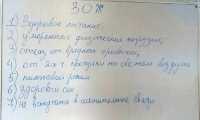 ЗОЖ
1) Здоровое питание.
2) умеренные физические нагрузки,
3) отказ от вредных привычек,
4) от 2х ч. прогулки на свежем воздухе
5) питьевой режим
6) здоровый сон
7) не вступать в сомнительные связи